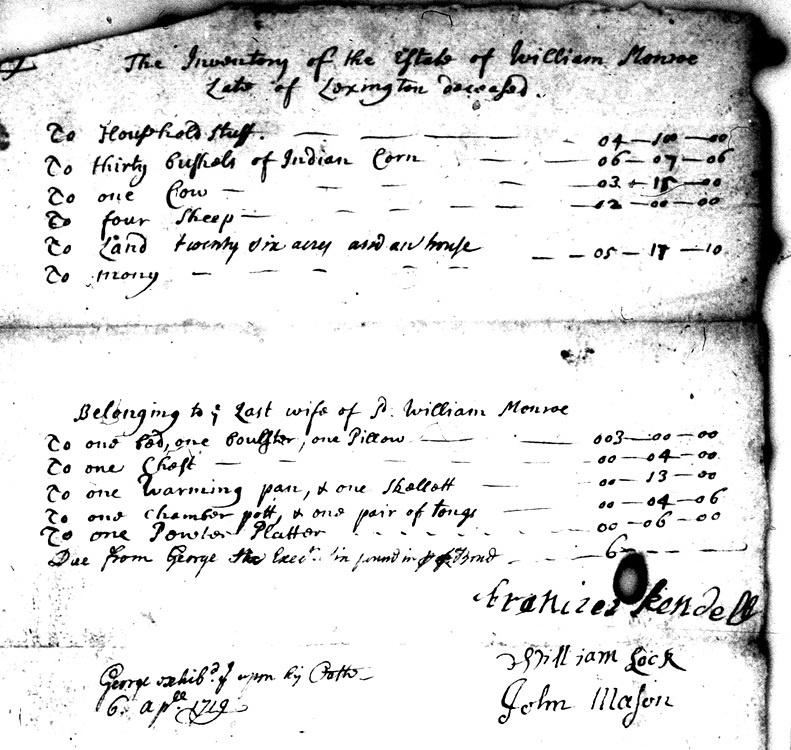 The Inventory of the Estate of William Monroe
Late of Lexington deceased.
To Household stuff. — — — 04—10—00
To thirty bushels of Indian Corn — — 06—07—06
To one Cow — — — 03—15—00
To four Sheep — — — 02—00—00
To Land twenty six acres and an house
To mony — — — 05—17—10
Belonging to ye Last wife of sd. William Monroe
To one bed, one boulster, one Pillow — — 003—00—00
To one Chest — — — 00—04—00
To one Warming pan, & one Skellett — 00—13—00
To one Chamber pott, & one pair of tongs — 00—04—06
To one Pewter Platter 00—06—00
Due from George the Execr. in Bond — 6—
Francies Kendell
William Lock
John Mason
George exhibd. upon his Oath
6. aprll 1719